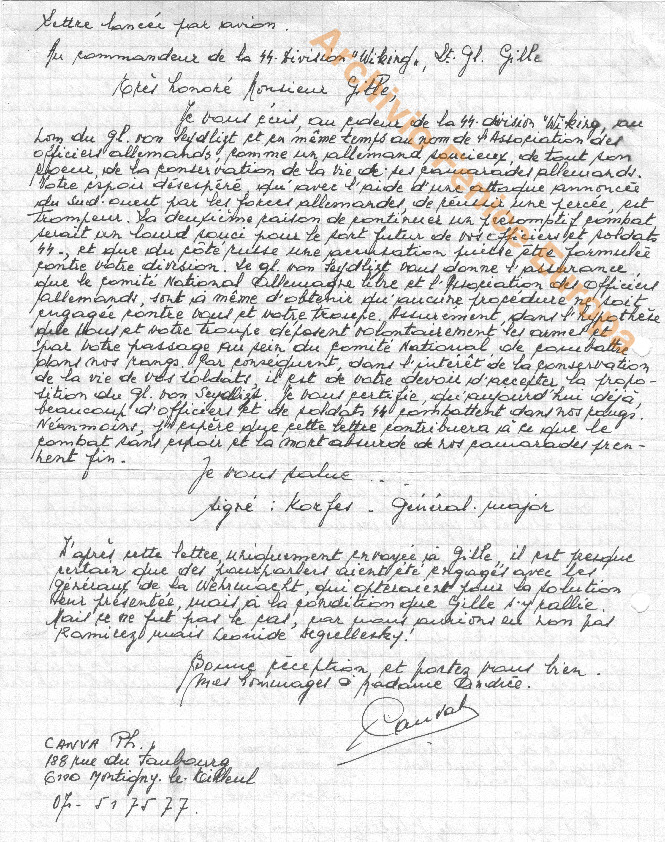 Lettre lancée par avion.
Au commandeur de la 44. Division "Wiking", Lt. Gl. Gille
Très honoré Monsieur Gille,
Je vous écris, au codeur de la 44. division "Wiking", au
nom du gl. von Seydlizt et en même temps au nom de l'Association des
officiers allemands, comme un allemand soucieux, de tout son
coeur, de la conservation de la vie de ses camarades allemands.
Votre espoir désespéré, qu'avec l'aide d'une attaque annoncée
du Sud-ouest par les forces allemandes, de réussir une percée, est
trompeur. La deuxième raison de continuer un combat
serait un lourd souci pour le sort futur de vos officiers et soldats
44., et que du côté russe une accusation puisse être formulée
contre votre division. Le gl. von Seydlizt vous donne l'assurance,
que le comité National Allemagne libre et l'Association des Officiers
allemands, sont à même d'obtenir qu'aucune procédure ne soit
engagée contre vous et votre troupe. Assurément, dans l'hypothèse
que vous et votre troupe déposent volontairement les armes et
par votre passage au sein du Comité National de combattre
dans nos rangs. Par conséquent, dans l'intérêt de la conservation
de la vie de vos soldats, il est de votre devoir d'accepter la propo-
sition du gl. von Seydlizt. Je vous certifie, qu'aujourd'hui déjà,
beaucoup d'officiers et de soldats 44 combattent dans nos rangs.
Néanmoins, j'espère que cette lettre contribuera à ce que le
combat sans espoir et la mort absurde de nos camarades pren-
nent fin.
Je vous salue...
signé : Korfes - Général-major
D'après cette lettre, uniquement envoyée à Gille, il est presque
certain que des pourparlers aient été engagés avec les
généraux de la Wehrmacht, qui opteraient pour la solution
leur présentée, mais à la condition que Gille s'y rallie.
Mais ce ne fut pas le cas, car nous aurions eu non pas
Ramirez mais Leonide Degrellesky!
Bonne réception, et portez vous bien.
Mes hommages à Madame Landrée.
Canva
CANVA Ph.,
188 rue du Faubourg
6110 Montigny-le-Tilleul
07- 51 75 77.
Archivio Fronte Europa